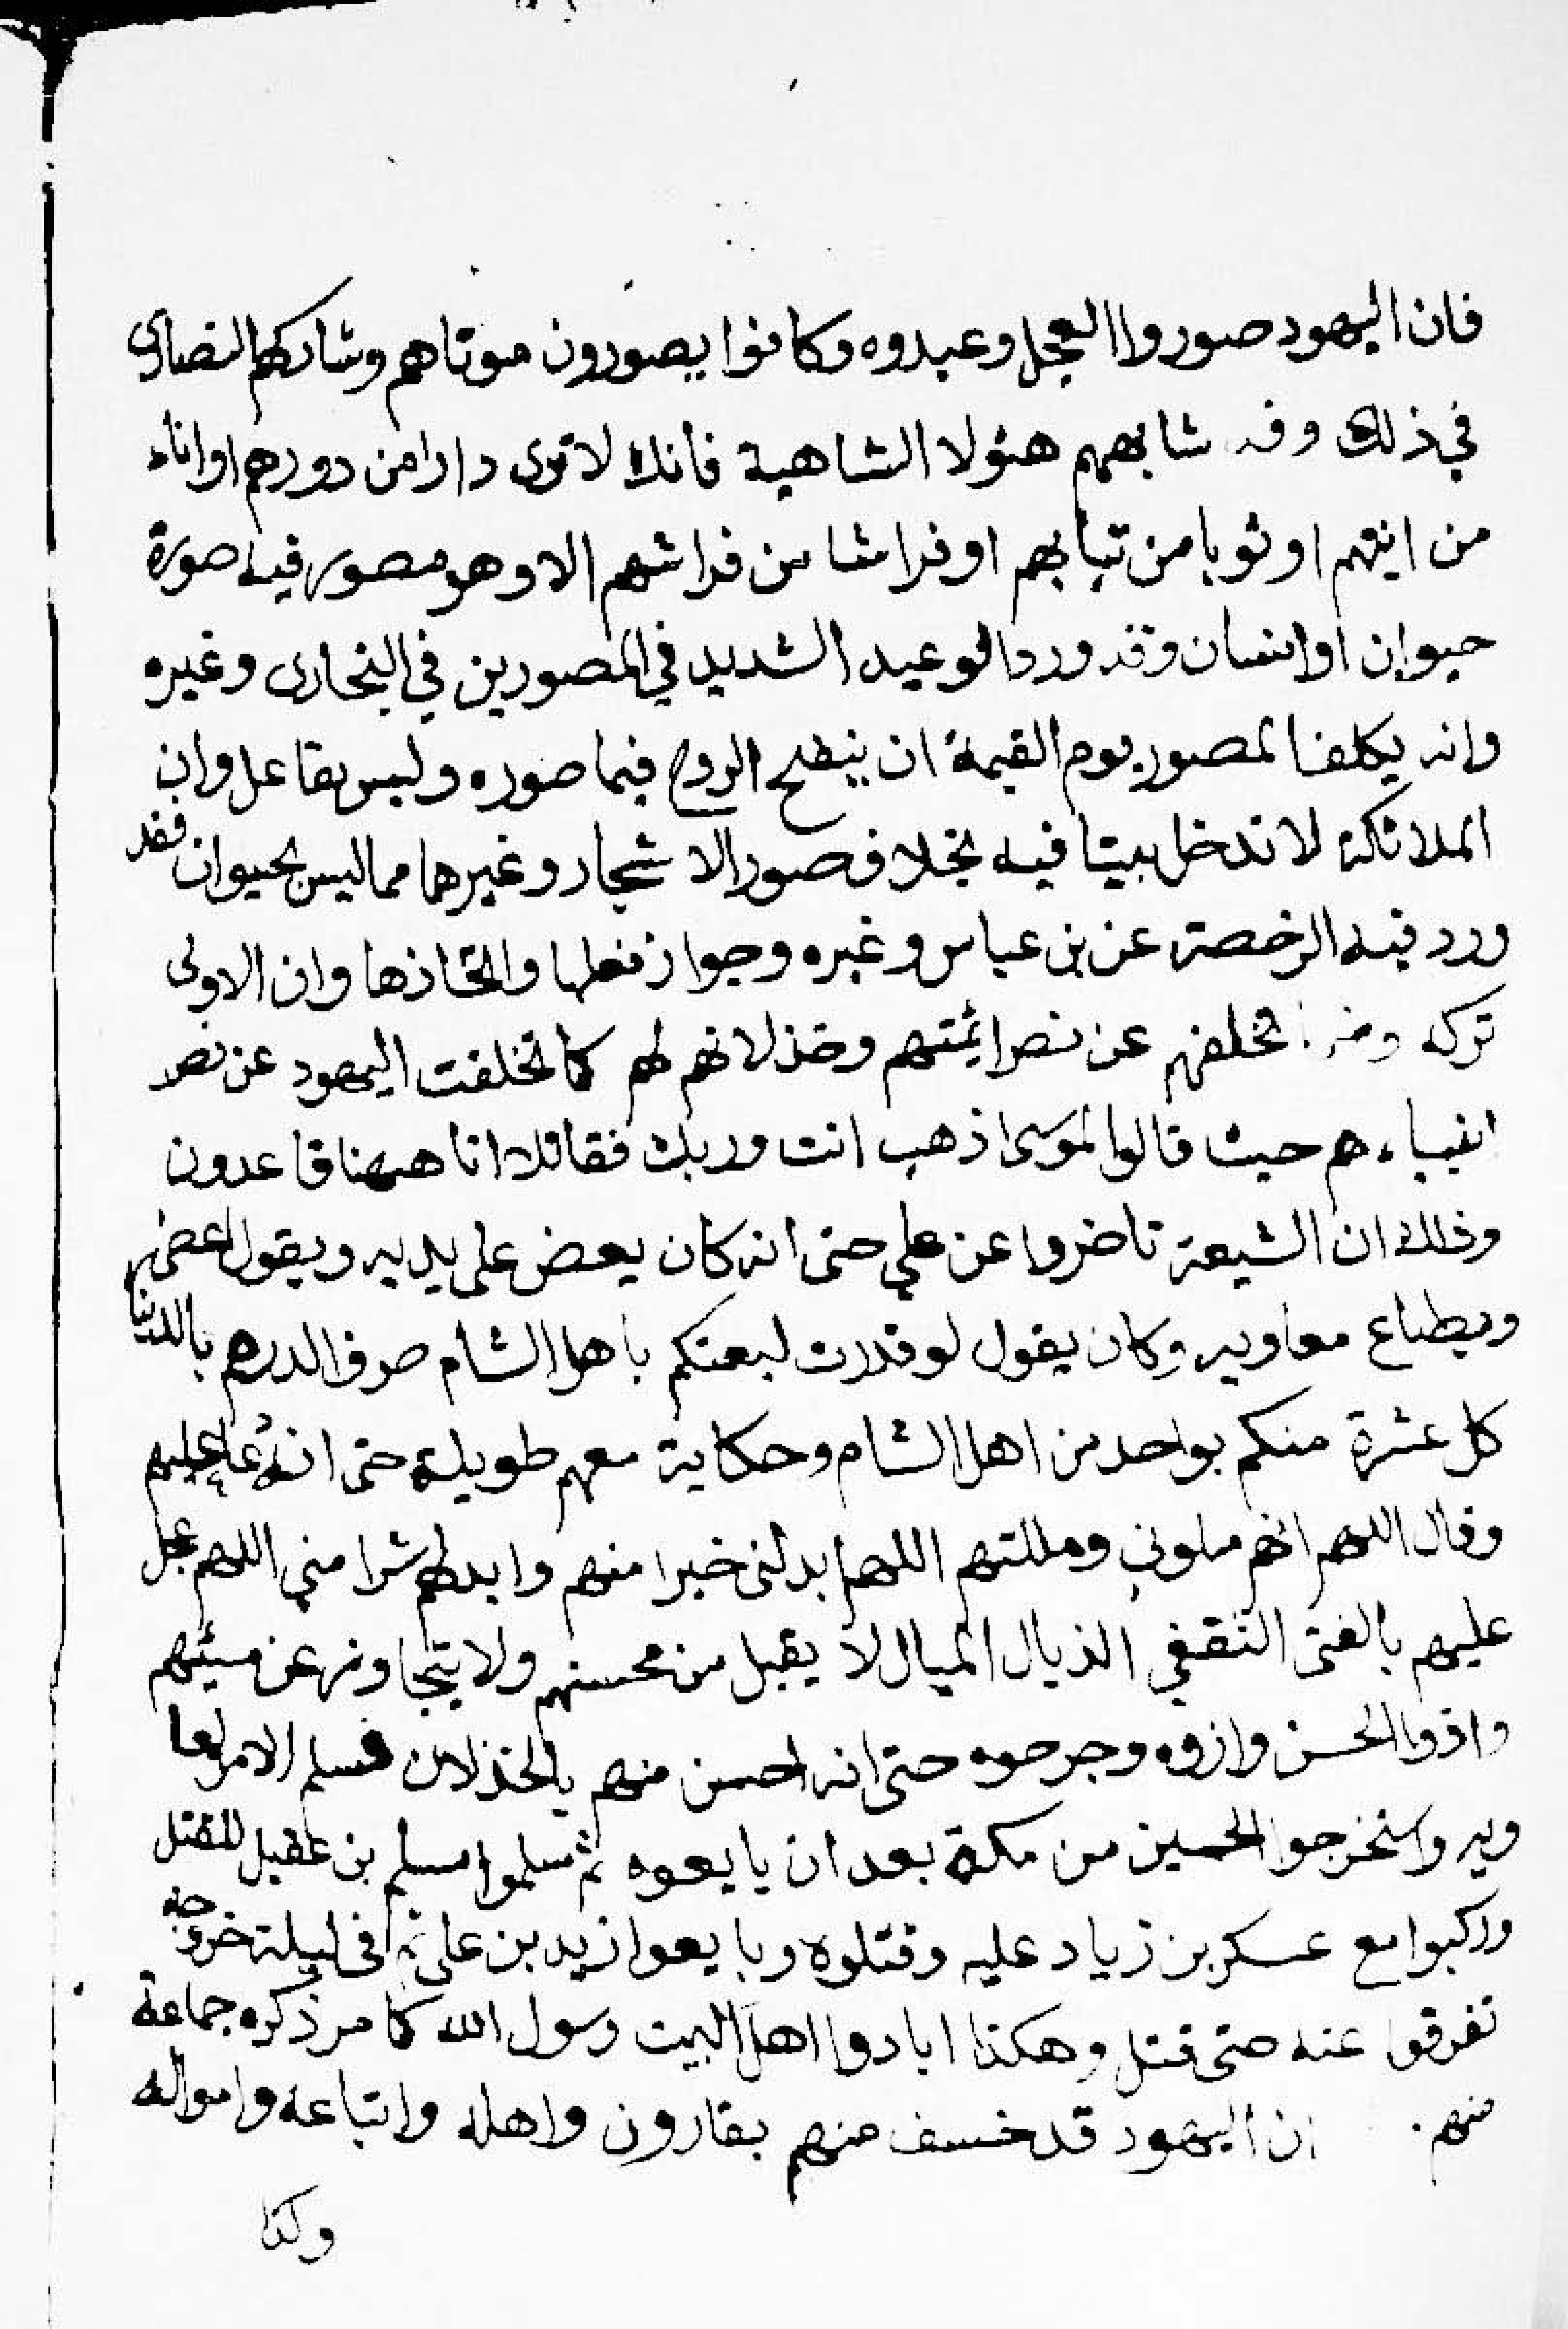 فان اليهود صوروا العجل وعبدوه وكانوا يصورون موتاهم وشاركهم النصارى
في ذلك وقد شابههم هئولا الشاهية فانك لا ترى دارا من دورهم او اناء
من انيتهم او ثوبا من ثيابهم او فراشا من فراشهم الا وهو مصور فيه صورة
حيوان او انسان وقد ورد الوعيد الشديد في المصورين في البخارى وغيره
وانه يكلف المصور يوم القيمة ان ينفخ الروح فيما صوره وليس بفاعل وان
الملائكة لا تدخل بيتا فيه بخلاف صور الاشجار وغيرها مما ليس بحيوان فقد
ورد فيه الرخصة عن بن عباس وغيره وجواز فعلها واتخاذها وان الاولى
تركه ومنها تخلفهم عن نصر ائمتهم وخذلانهم لهم كما تخلفت اليهود عن نصر
انبياءهم حيث قالوا لموسى اذهب انت وربك فقاتلا انا ههنا قاعدون
وذلك ان الشيعة تاخروا عن علي حتى انه كان يعض على يديه ويقول اعصى
ويطاع معاويه وكان يقول لو قدرت لبعتكم باهل الشام صرف الدرهم بالدينار
كل عشرة منكم بواحد من اهل الشام وحكاية معهم طويلة حتى انه دعا عليهم
وقال اللهم انهم ملوني ومللتهم اللهم ابدلنى خيرا منهم وابدلهم شرا مني اللهم عجل
عليهم بالفتى الثقفي الذيال الميال لا يقبل من محسنهم ولا يتجاوز عن مسيئهم
واذوا الحسن وازوه وجرحوه حتى انه احسن منهم بالخذلان فسلم الامر لمعا
ويه واستخرجوا الحسين من مكة بعد ان بايعوه ثم سلموا مسلم بن عقيل للقتل
وركبوا مع عسكر بن زياد عليه وقتلوه وبايعوا زيد بن على ثم في ليلة خروجه
تفرقوا عنه حتى قتل وهكذا ابادوا اهل البيت رسول الله كما مر ذكره جماعة
منهم. ان اليهود قد خسف منهم بقارون واهله واتباعه وامواله
وكذا